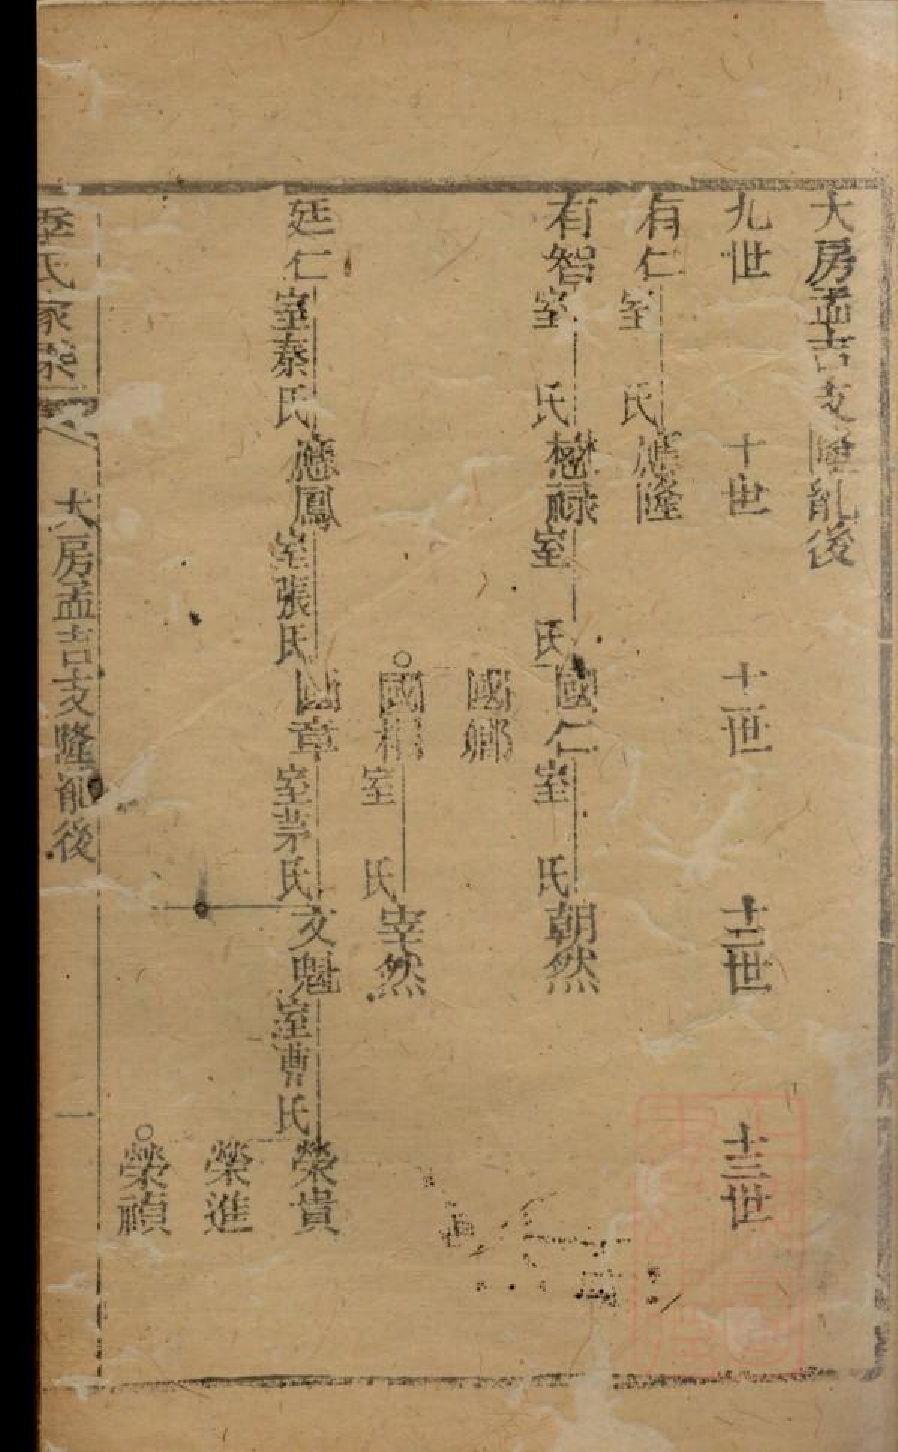 大房孟吉支隆胤後
九世
十世
十一世
十二世
十三世
有仁室 氏應隆
有智室 氏懋祿室 氏國仁室 氏朝然
國鄉
國相室 氏宰然
延仁室秦氏應鳳室張氏國章室茅氏文魁室曹氏榮貴
榮進
榮禎
季氏家
大房孟吉支隆胤後
一